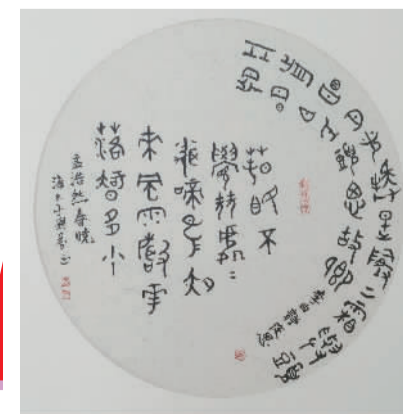 牀前明月光疑是地上霜舉頭
望明月低頭思故鄉
李白靜夜思
春眠不
覺曉處=
聞啼鳥夜
來風雨聲花
落知多少
孟浩然春曉